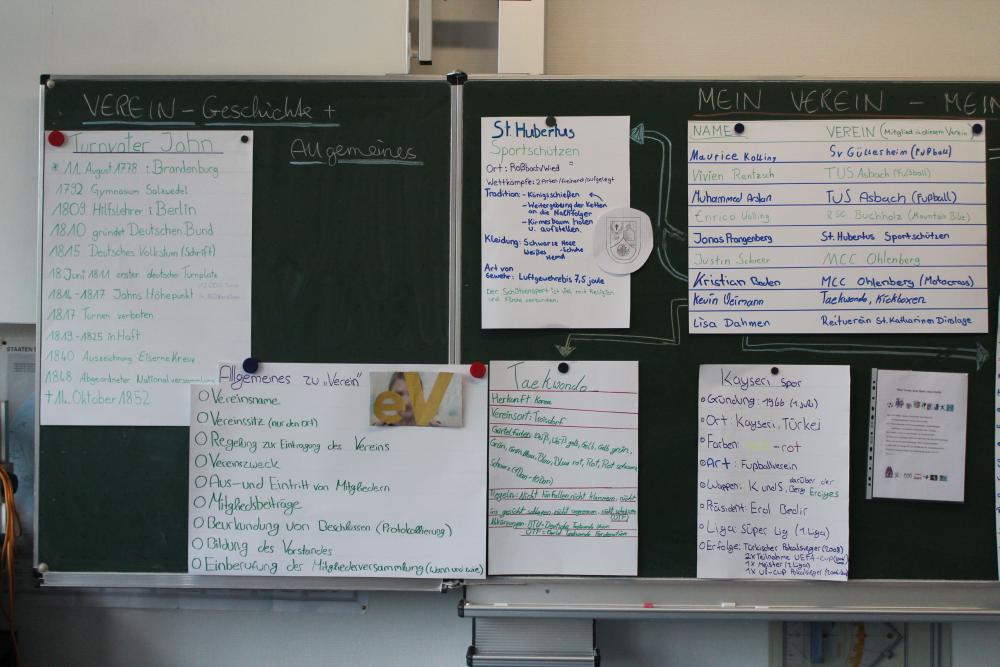 VEREIN - Geschichte +
Allgemeines
MEIN VEREIN - MEIN
Turnvater Jahn
* 11. August 1778 : Brandenburg
1792 Gymnasium Salzwedel
1809 Hilfslehrer i Berlin
1810 gründet Deutschen Bund
1815 Deutsches Volkstum (Schrift)
18 Juni 1811 erster deutsche Turnplatz
1814-1817 Jahns Höhepunkt
1817 Turnen verboten
1819-1825 in Haft
1840 Auszeichnung Eiserne Kreuz
1848 Abgeordneter Nationalversammlung
†14. Oktober 1852
Allgemeines zu "Verein"
eV
Vereinsname
Vereinssitz (nur den Ort)
Regelung zur Eintragung des Vereins
Vereinszweck
Aus- und Eintritt von Mitgliedern
Mitgliedsbeiträge
Beurkundung von Beschlüssen (Protokollierung)
Bildung des Vorstandes
Einberufung der Mitgliederversammlung (wann und wie)
St. Hubertus
Sportschützen
Ort: Roßbach/Wied
Wettkämpfe: 2 Arten/Freihand/aufgelegt
Tradition: - Königschießen
- Weitergebung der Ketten
an die Nachfolger
- Kirmesbaum holen
u. aufstellen.
Kleidung: Schwarze Hose
Weißes Hemd -Schuhe
Art von
Gewehr: Luftgewehre bis 7,5 joule
Der Schützensport ist viel mit Religion
und Kirche verbunden.
NAME VEREIN (Mitglied in diesem Verein)
Maurice Kolling SV Güllesheim (Fußball)
Vivien Rentzsch TUS Asbach (Fußball)
Muhammed Arslan TUS Asbach (Fußball)
Enrico RSC Buchholz (Mountain Bike)
Jonas Prangenberg St. Hubertus Sportschützen
Justin MCC Ohlenberg
Kristian Boden MCC Ohlenberg (Motocross)
Kevin Taekwondo, Kickboxen
Lisa Dahmen Reitverein St. Katharinen
Taekwondo
Herkunft: Korea
Vereinsort: Troisdorf
Gürtelfarben: Weiß, Weiß gelb, Gelb, Gelb grün,
Grün, Grün Blau, Blau, Blau rot, Rot, Rot schwarz,
Schwarz
Regeln: Nicht hinfallen, nicht klammern, nicht
ins gesicht schlagen, nicht
Abkürzungen: DTU = Deutsche Taekwondo Union
WTF =
Kayseri Spor
Gründung: 1966 (1. Juli)
Ort: Kayseri, Türkei
Farben: gelb - rot
Art: Fußballverein
Wappen: K und S, darüber der Berg Erciyes
Präsident: Erol Bedir
Liga: Süper Lig (1. Liga)
Erfolge: Türkischer Pokalsieger (2008)
2x Teilnahme UEFA-Cup
1x Meister (2. Liga)
1x UI-Cup Pokalsieger
STAATEN